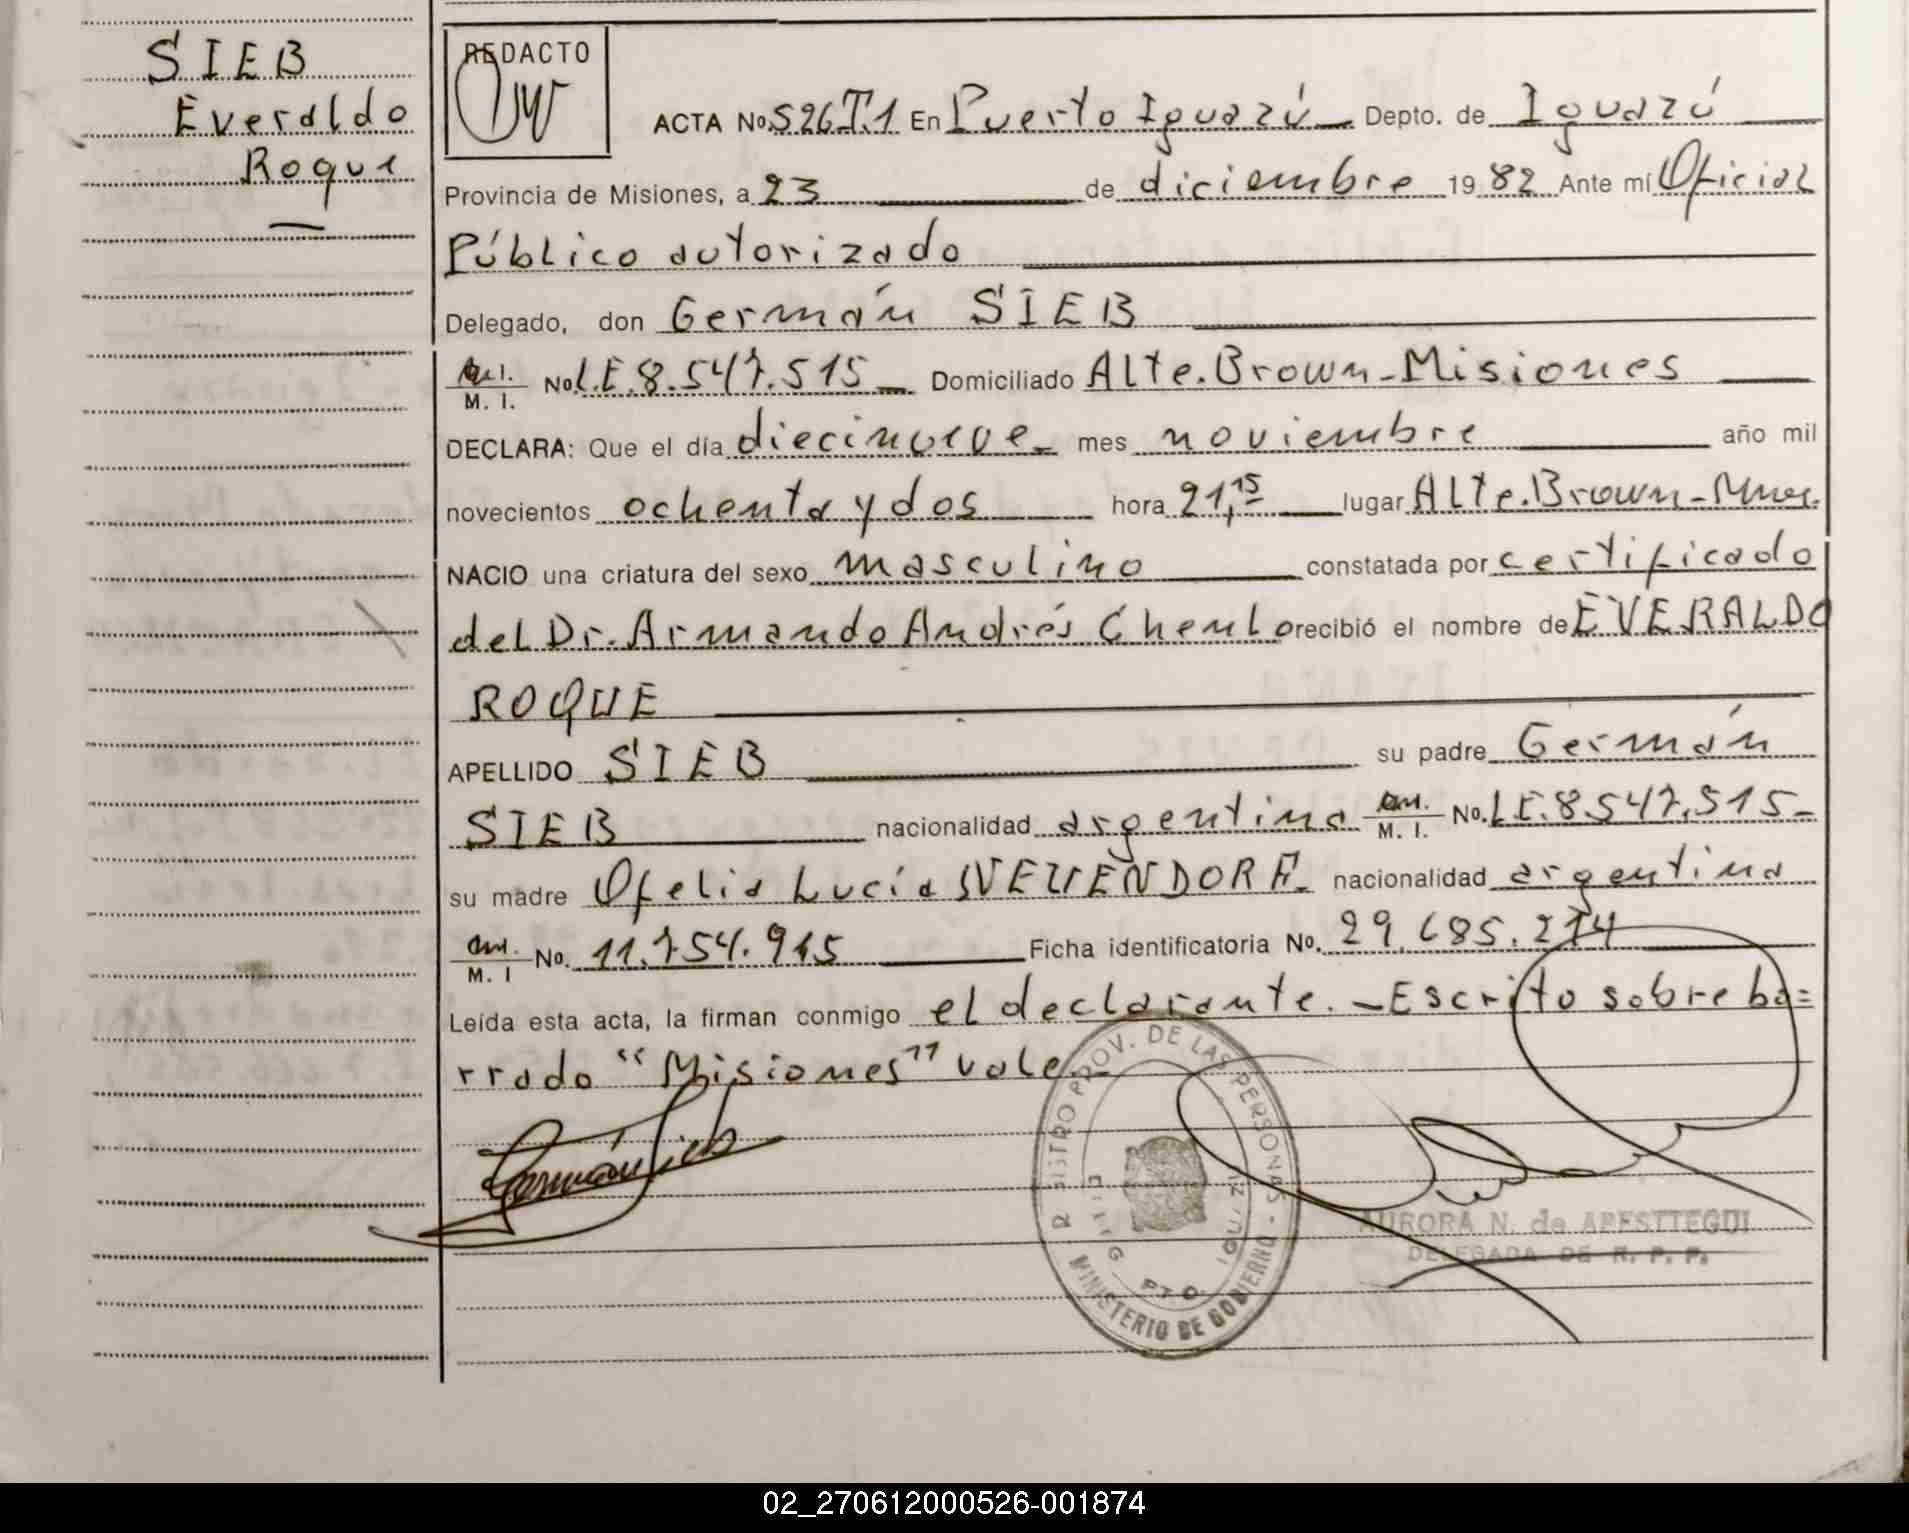 SIEB
Everaldo
Roque
REDACTO
ACTA No. 526 T.1 En Puerto Iguazú Depto. de Iguazú
Provincia de Misiones, a 23 de diciembre 1982 Ante mí Oficial
Público autorizado
Delegado, don Germán SIEB
M. I. No. L.E. 8.547.515 Domiciliado Alte. Brown - Misiones
DECLARA: Que el día diecinueve mes noviembre año mil
novecientos ochenta y dos hora 21,15 lugar Alte. Brown - Mnes.
NACIO una criatura del sexo masculino constatada por certificado
del Dr. Armando Andrés Chemlo recibió el nombre de EVERALDO
ROQUE
APELLIDO SIEB su padre Germán
SIEB nacionalidad argentina M. I. No. L.E. 8.547.515-
su madre Ofelia Lucía nacionalidad argentina
M. I No. 11.754.915 Ficha identificatoria No. 29.685.274
Leída esta acta, la firman conmigo el declarante. - Escrito sobre bo=
rrado "Misiones" vale.-
Germán Sieb
REGISTRO PROV. DE LAS PERSONAS - MINISTERIO DE GOBIERNO
PTO.
AURORA N. de APESTTEGUI
DELEGADA DE R. P. P.
02_270612000526-001874